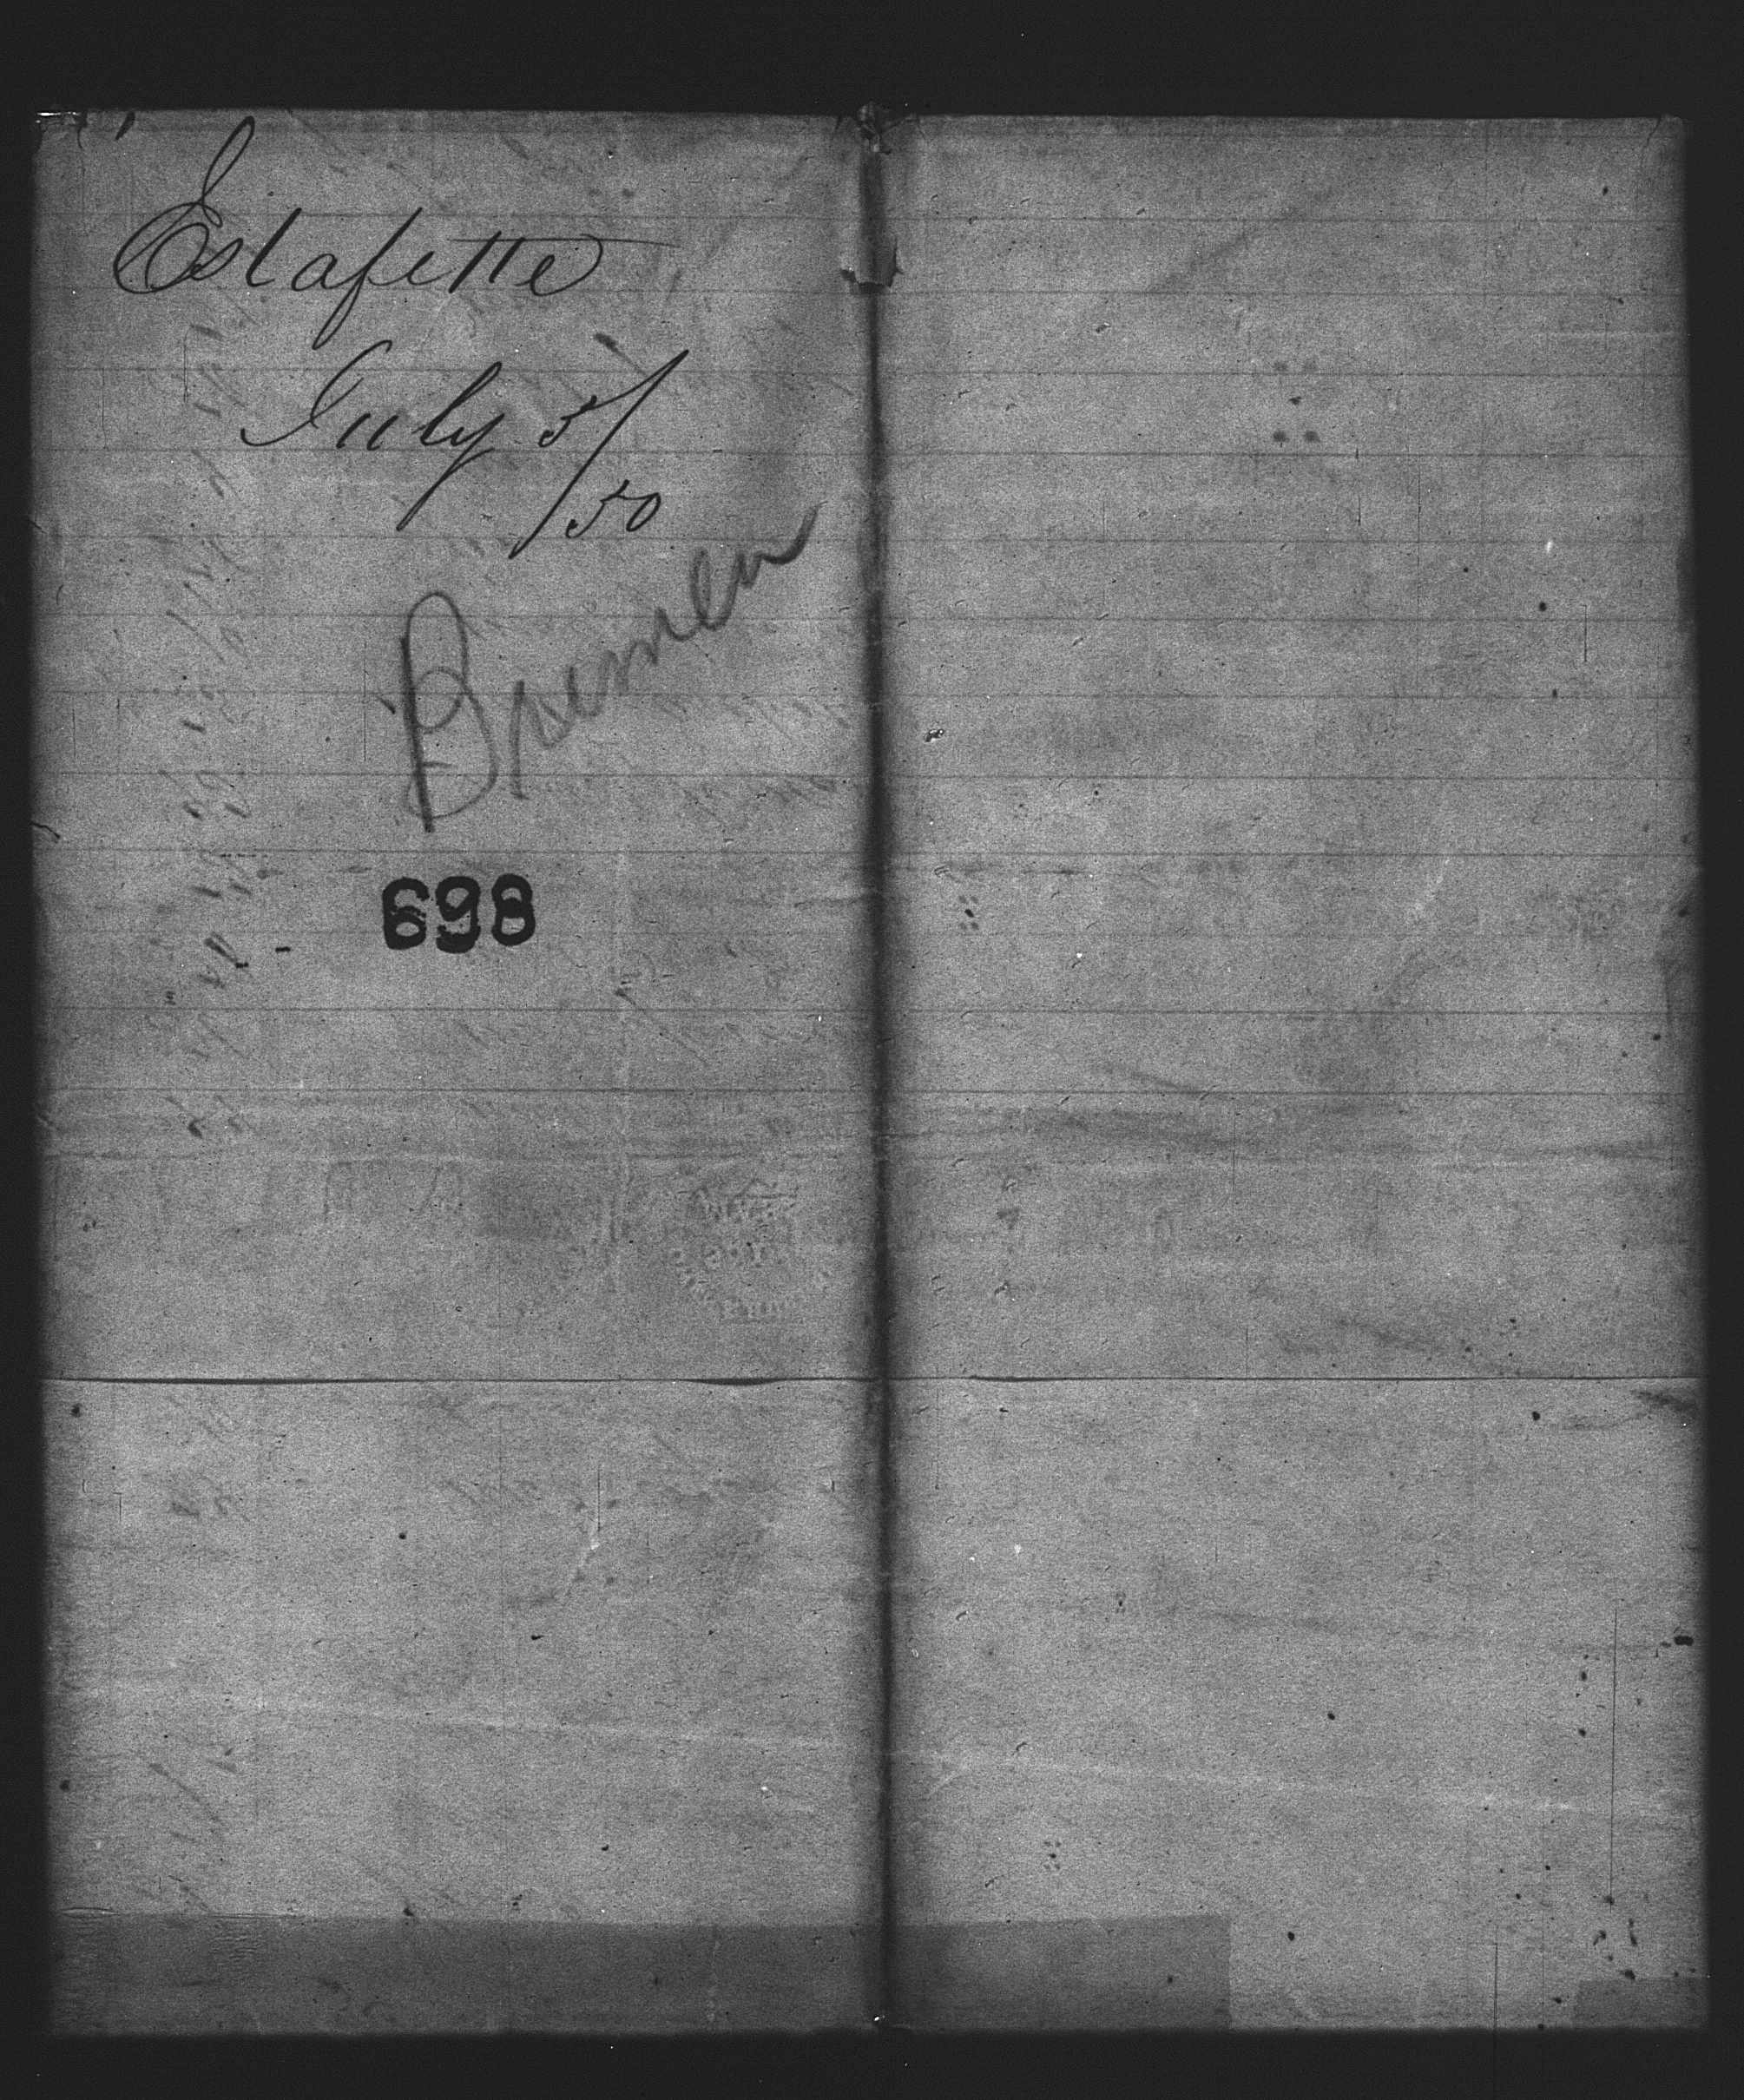 Estafette
July 5/50
Bremen
698